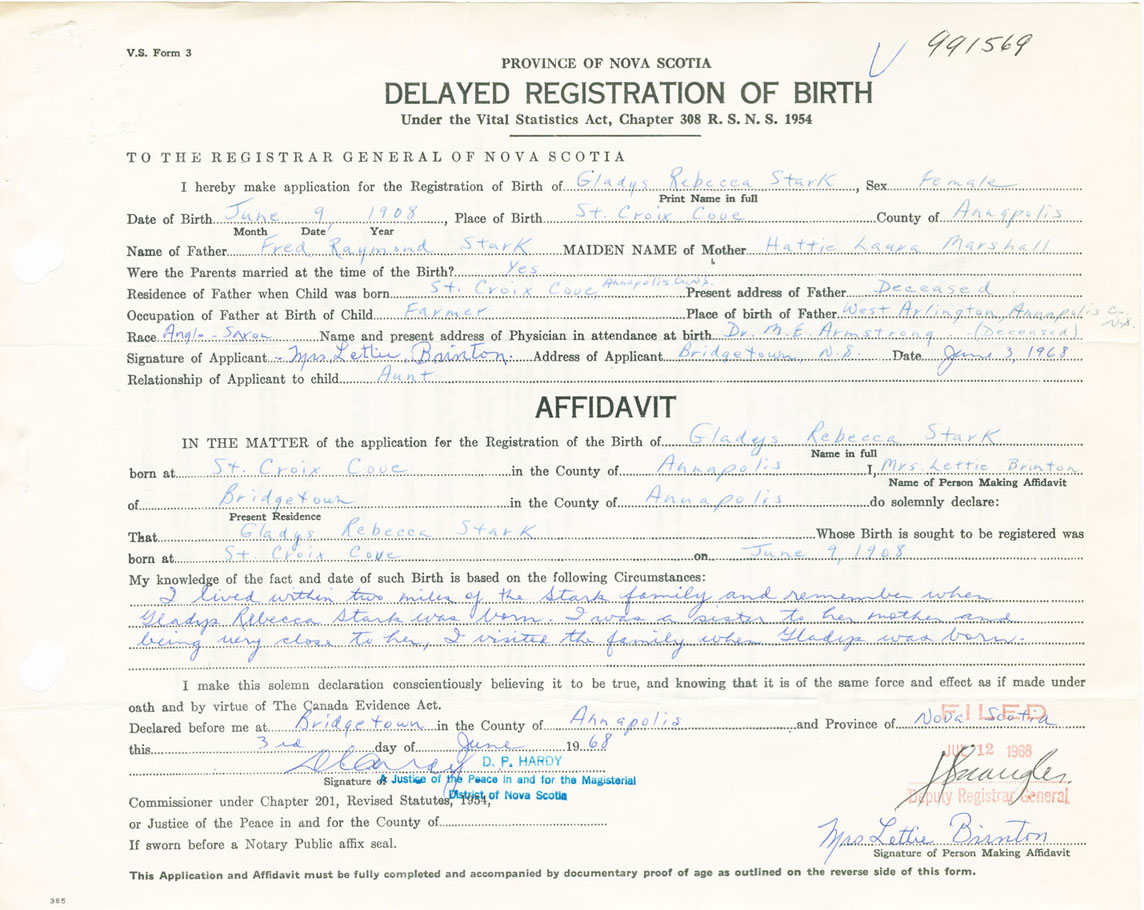 V.S. Form 3
991569
PROVINCE OF NOVA SCOTIA
DELAYED REGISTRATION OF BIRTH
Under the Vital Statistics Act, Chapter 308 R. S. N. S. 1954
TO THE REGISTRAR GENERAL OF NOVA SCOTIA
I hereby make application for the Registration of Birth of Gladys Rebecca Stark, Sex Female
Print Name in full
Date of Birth June 9, 1908, Place of Birth St. Croix Cove County of Annapolis
Month Date Year
Name of Father Fred Raymond Stark MAIDEN NAME of Mother Hattie Laura Marshall
Were the Parents married at the time of the Birth? Yes
Residence of Father when Child was born St. Croix Cove, Annapolis Co., N.S. Present address of Father Deceased
Occupation of Father at Birth of Child Farmer Place of birth of Father West Arlington, Annapolis Co. N.S.
Race Anglo-Saxon Name and present address of Physician in attendance at birth Dr. M.E. Armstrong (Deceased)
Signature of Applicant Mrs. Lettie Brinton Address of Applicant Bridgetown, N.S. Date June 3, 1968
Relationship of Applicant to child Aunt
AFFIDAVIT
IN THE MATTER of the application for the Registration of the Birth of Gladys Rebecca Stark
Name in full
born at St. Croix Cove in the County of Annapolis I, Mrs. Lettie Brinton
Name of Person Making Affidavit
of Bridgetown in the County of Annapolis do solemnly declare:
Present Residence
That Gladys Rebecca Stark Whose Birth is sought to be registered was
born at St. Croix Cove on June 9, 1908
My knowledge of the fact and date of such Birth is based on the following Circumstances:
I lived within two miles of the Stark family and remember when
Gladys Rebecca Stark was born. I was a sister to her mother and
being very close to her, I visited the family when Gladys was born.
I make this solemn declaration conscientiously believing it to be true, and knowing that it is of the same force and effect as if made under
oath and by virtue of The Canada Evidence Act.
Declared before me at Bridgetown in the County of Annapolis and Province of Nova Scotia
FILED
this 3rd day of June 1968
12 1968
D. P. HARDY
Signature of A Justice of the Peace in and for the Magisterial
District of Nova Scotia
Deputy Registrar General
Commissioner under Chapter 201, Revised Statutes, 1954,
or Justice of the Peace in and for the County of
Mrs Lettie Brinton
If sworn before a Notary Public affix seal.
Signature of Person Making Affidavit
This Application and Affidavit must be fully completed and accompanied by documentary proof of age as outlined on the reverse side of this form.